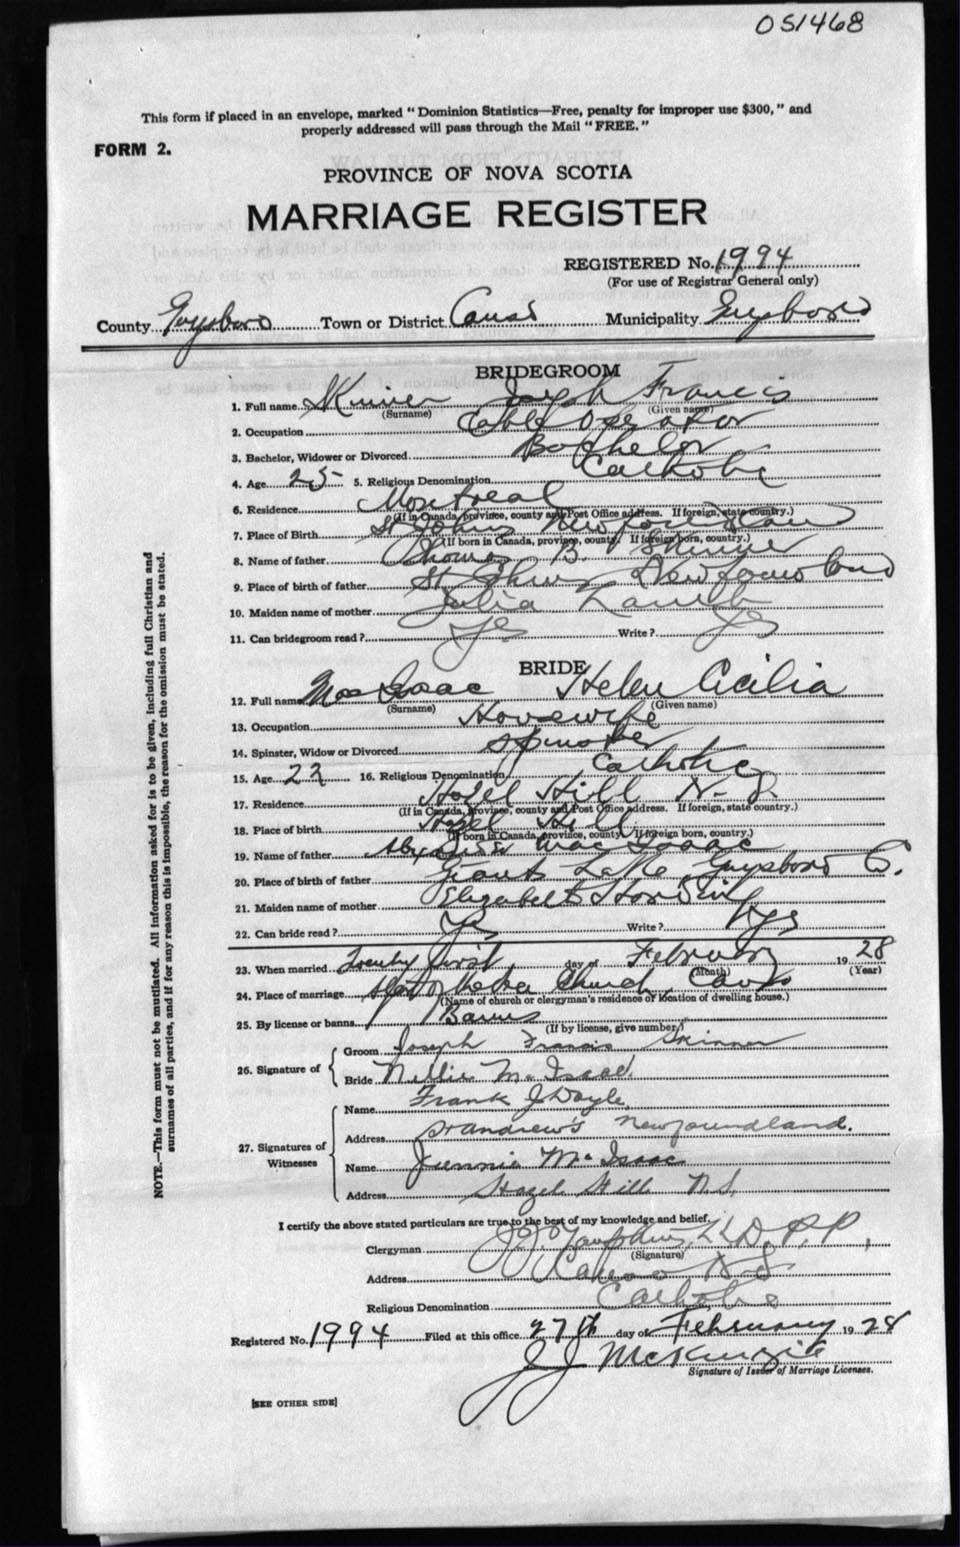 051468
This form if placed in an envelope, marked "Dominion Statistics—Free, penalty for improper use $300," and
properly addressed will pass through the Mail "FREE."
FORM 2.
PROVINCE OF NOVA SCOTIA
MARRIAGE REGISTER
REGISTERED No. 1994
(For use of Registrar General only)
County Guysboro Town or District Canso Municipality Guysboro
BRIDEGROOM
1. Full name Skinner Joseph Francis
(Surname) (Given name)
2. Occupation Cable Operator
3. Bachelor, Widower or Divorced Bachelor
4. Age 25 5. Religious Denomination Catholic
6. Residence Montreal
(If in Canada, province, county and Post Office address. If foreign, state country.)
7. Place of Birth St Johns Newfoundland
(If born in Canada, province, county. If foreign born, country.)
8. Name of father Thomas B. Skinner
9. Place of birth of father St Johns Newfoundland
10. Maiden name of mother Julia
11. Can bridegroom read? Yes Write? Yes
BRIDE
12. Full name MacIsaac Helen Cicilia
(Surname) (Given name)
13. Occupation Housewife
14. Spinster, Widow or Divorced Spinster
15. Age 22 16. Religious Denomination Catholic
17. Residence Hazel Hill N.S.
(If in Canada, Province, county and Post Office address. If foreign, state country.)
18. Place of birth Hazel Hill
(If born in Canada, province, county. If foreign born, country.)
19. Name of father Alexander MacIsaac
20. Place of birth of father Giants Lake Guysboro Co.
21. Maiden name of mother Elizabeth
22. Can bride read? Yes Write? Yes
23. When married Twenty first day of February 1928
(Month) (Year)
24. Place of marriage Church, Canso
(Name of church or clergyman's residence or location of dwelling house.)
25. By license or banns Banns
(If by license, give number)
26. Signature of { Groom Joseph Francis Skinner
Bride Nellie McIsaac
27. Signatures of Witnesses { Name Frank J Doyle
Address St Andrew's Newfoundland.
Name Jennie McIsaac
Address Hazel Hill N.S.
I certify the above stated particulars are true to the best of my knowledge and belief.
Clergyman L.L.D. P.P.
(Signature)
Address Canso N.S.
Religious Denomination Catholic
Registered No. 1994 Filed at this office 27th day of February 1928
J J McKenzie
Signature of Issuer of Marriage Licenses.
[SEE OTHER SIDE]
NOTE.—This form must not be mutilated. All information asked for is to be given, including full Christian and
surnames of all parties, and if for any reason this is impossible, the reason for the omission must be stated.